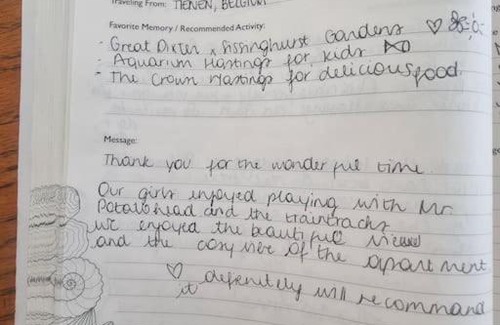 Traveling From: TIENEN, BELGIUM
Favorite Memory / Recommended Activity:
- Great Dixter & Sissinghurst Gardens
- Aquarium Hastings for kids
- The Crown Hastings for delicious food.
Message:
Thank you for the wonderful time
Our girls enjoyed playing with Mr.
Potatohead and the traintracks
we enjoyed the beautiful views
and the of the apartment
definitely will recommand
it